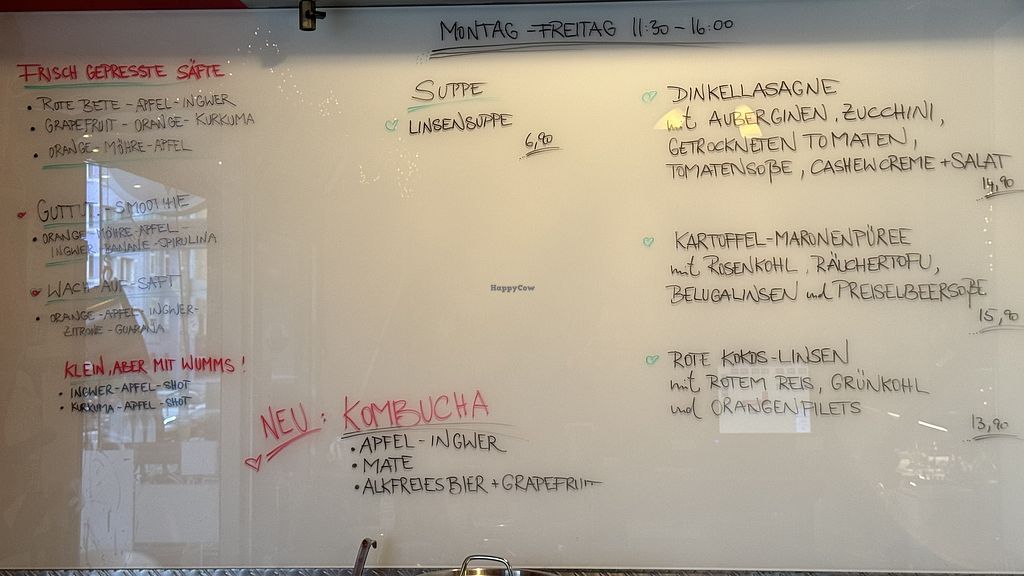 MONTAG - FREITAG 11:30 - 16:00
FRISCH GEPRESSTE SÄFTE
• ROTE BETE - APFEL - INGWER
• GRAPEFRUIT - ORANGE - KURKUMA
• ORANGE - MÖHRE - APFEL
GUTTUT - SMOOTHIE
• ORANGE - MÖHRE - APFEL -
INGWER - BANANE - SPIRULINA
WACH-AUF-SAFT
• ORANGE - APFEL - INGWER -
ZITRONE - GUARANA
KLEIN, ABER MIT WUMMS!
• INGWER - APFEL - SHOT
• KURKUMA - APFEL - SHOT
SUPPE
LINSENSUPPE
6,90
HappyCow
NEU: KOMBUCHA
• APFEL - INGWER
• MATE
• ALKFREIES BIER + GRAPEFRUIT
DINKELLASAGNE
mit AUBERGINEN, ZUCCHINI,
GETROCKNETEN TOMATEN,
TOMATENSOßE, CASHEWCREME + SALAT
14,90
KARTOFFEL-MARONENPÜREE
mit ROSENKOHL, RÄUCHERTOFU,
BELUGALINSEN und PREISELBEERSOßE
15,90
ROTE KOKOS-LINSEN
mit ROTEM REIS, GRÜNKOHL
und ORANGENFILETS
13,90